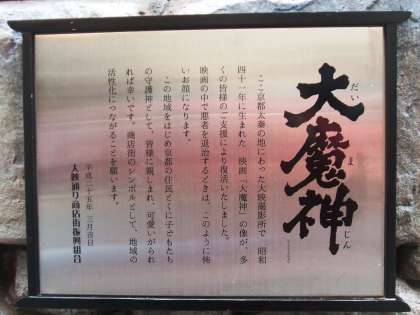 大魔神
だいまじん
ここ京都太秦の地にあった大映撮影所で、昭和
四十一年に生まれた 映画「大魔神」の像が、多
くの皆様のご支援により復活いたしました。
映画の中で悪者を退治するときは、このように怖
いお顔になります。
この地域をはじめ京都の住民とくに子どもたち
の守護神として、皆様に親しまれ、可愛いがられ
れば幸いです。商店街のシンボルとして、地域の
活性化につながることを願います。
平成二十五年 三月吉日
大映通り商店街振興組合